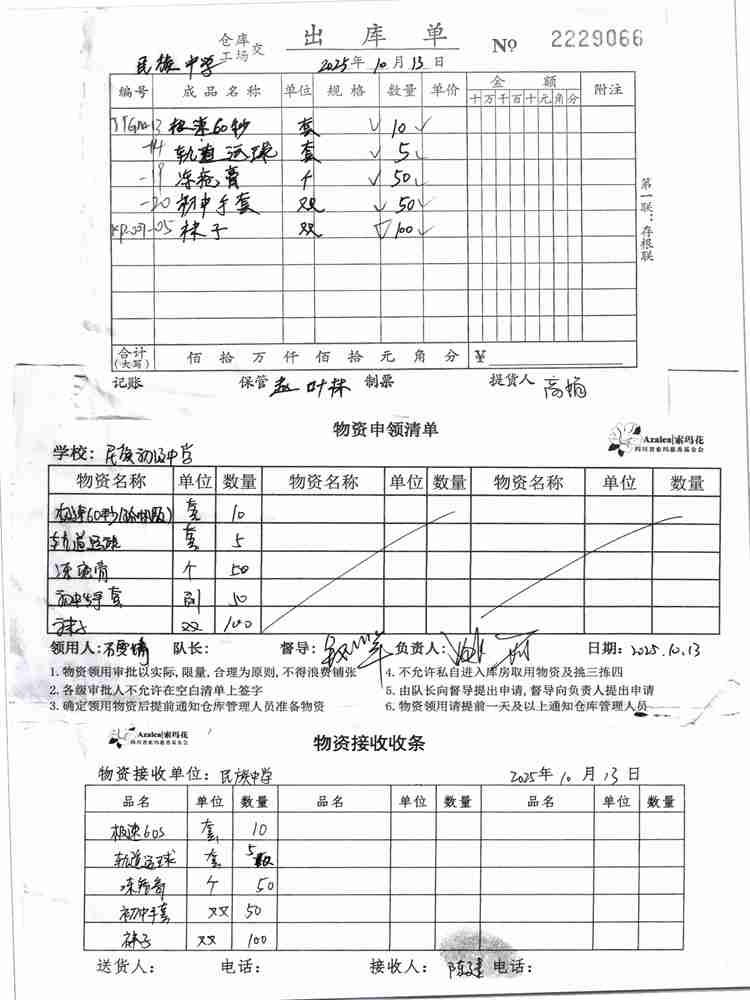 仓库
工场交
出库单
№ 2229066
民族中学
2025年10月13日
编号 成品名称 单位 规格 数量 单价 金额 附注
十万千百十元角分
13 极速60秒 套 10
14 轨道运球 套 5
-19 冻疮膏 个 50
-20 初中手套 双 50
-05 袜子 双 100
第一联：存根联
合计(大写) 佰拾万仟佰拾元角分 ¥
记账 保管 制票 提货人
物资申领清单
Azalea|索玛花
四川省索玛慈善基金会
学校：民族初级中学
物资名称 单位 数量 物资名称 单位 数量 物资名称 单位 数量
极速60秒 套 10
轨道运球 套 5
冻疮膏 个 50
初中生手套 副 50
袜子 双 100
领用人: 队长: 督导: 负责人: 日期: 2025.10.13
1.物资领用审批以实际,限量,合理为原则,不得浪费铺张 4.不允许私自进入库房取用物资及挑三拣四
2.各级审批人不允许在空白清单上签字 5.由队长向督导提出申请,督导向负责人提出申请
3.确定领用物资后提前通知仓库管理人员准备物资 6.物资领用请提前一天及以上通知仓库管理人员
Azalea|索玛花
四川省索玛慈善基金会
物资接收收条
物资接收单位：民族中学 2025年10月13日
品名 单位 数量 品名 单位 数量 品名 单位 数量
极速60s 套 10
轨道运球 套 5
冻疮膏 个 50
初中手套 双 50
袜子 双 100
送货人： 电话： 接收人： 电话：